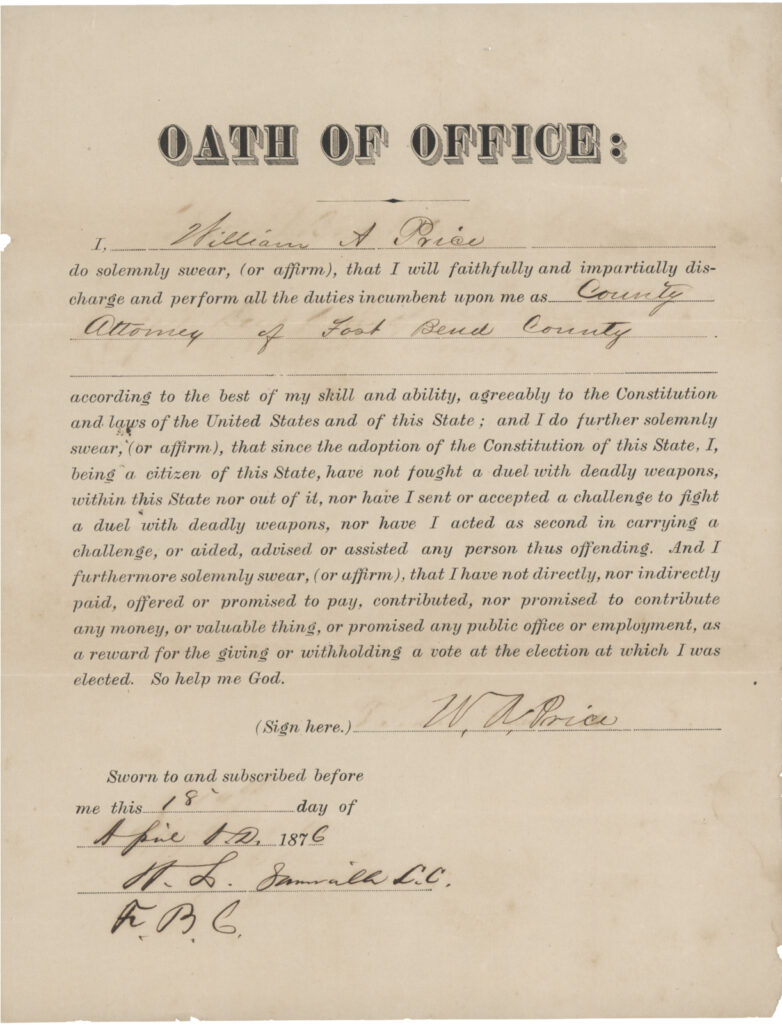 OATH OF OFFICE:
I, William A Price
do solemnly swear, (or affirm), that I will faithfully and impartially dis-
charge and perform all the duties incumbent upon me as County
Attorney of Fort Bend County
according to the best of my skill and ability, agreeably to the Constitution
and laws of the United States and of this State; and I do further solemnly
swear, (or affirm), that since the adoption of the Constitution of this State, I,
being a citizen of this State, have not fought a duel with deadly weapons,
within this State nor out of it, nor have I sent or accepted a challenge to fight
a duel with deadly weapons, nor have I acted as second in carrying a
challenge, or aided, advised or assisted any person thus offending. And I
furthermore solemnly swear, (or affirm), that I have not directly, nor indirectly
paid, offered or promised to pay, contributed, nor promised to contribute
any money, or valuable thing, or promised any public office or employment, as
a reward for the giving or withholding a vote at the election at which I was
elected. So help me God.
(Sign here.) W. A. Price
Sworn to and subscribed before
me this 18 day of
April A.D. 1876
L. C.C.
F. B. C.